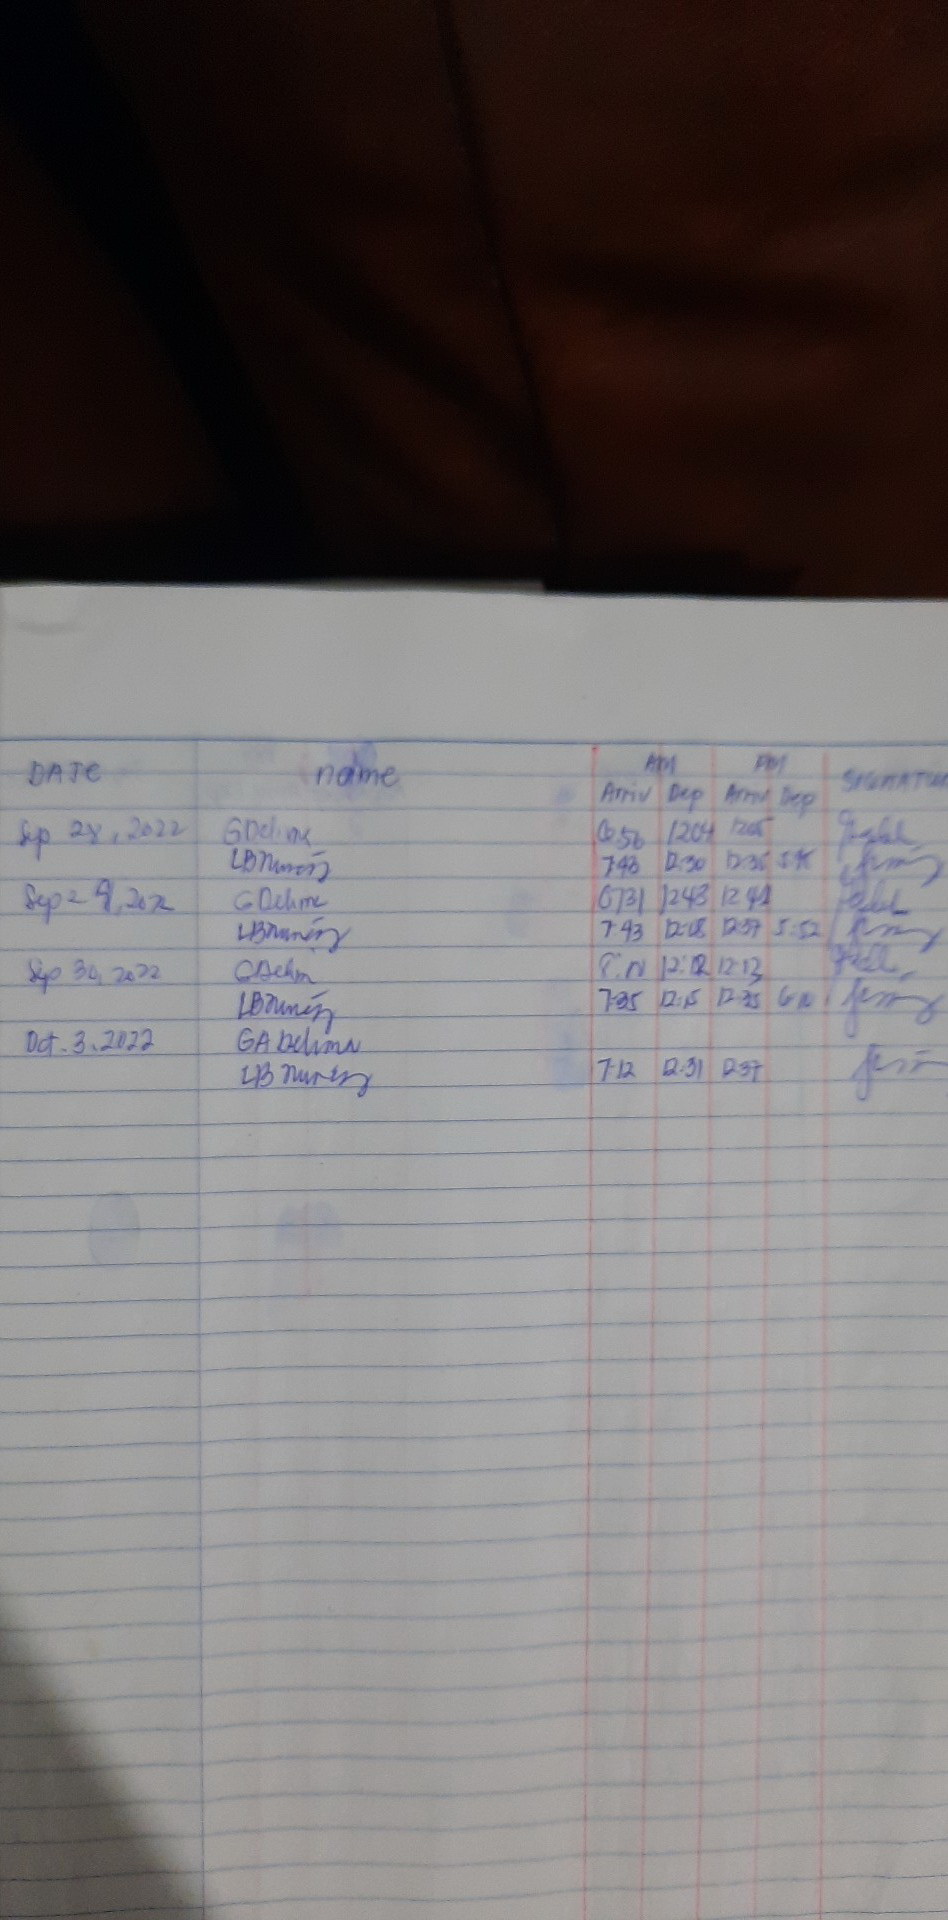 DATE name AM PM SIGNATUR
Arriv Dep Arriv Dep
Sep 28, 2022 GDelima 6:56 1204 1205
LBNunez 7:48 12:30 12:35
Sep 29, 2022 GDelima 6731 1243 1244
LBNunez 7:43 12:37 5:52
Sep 30, 2022 GDelim 12:12 12:13
LBNunez 7:35 12:15 12:35
Oct. 3. 2022 GADelima
LB Nunez 7:12 12:31 12:37